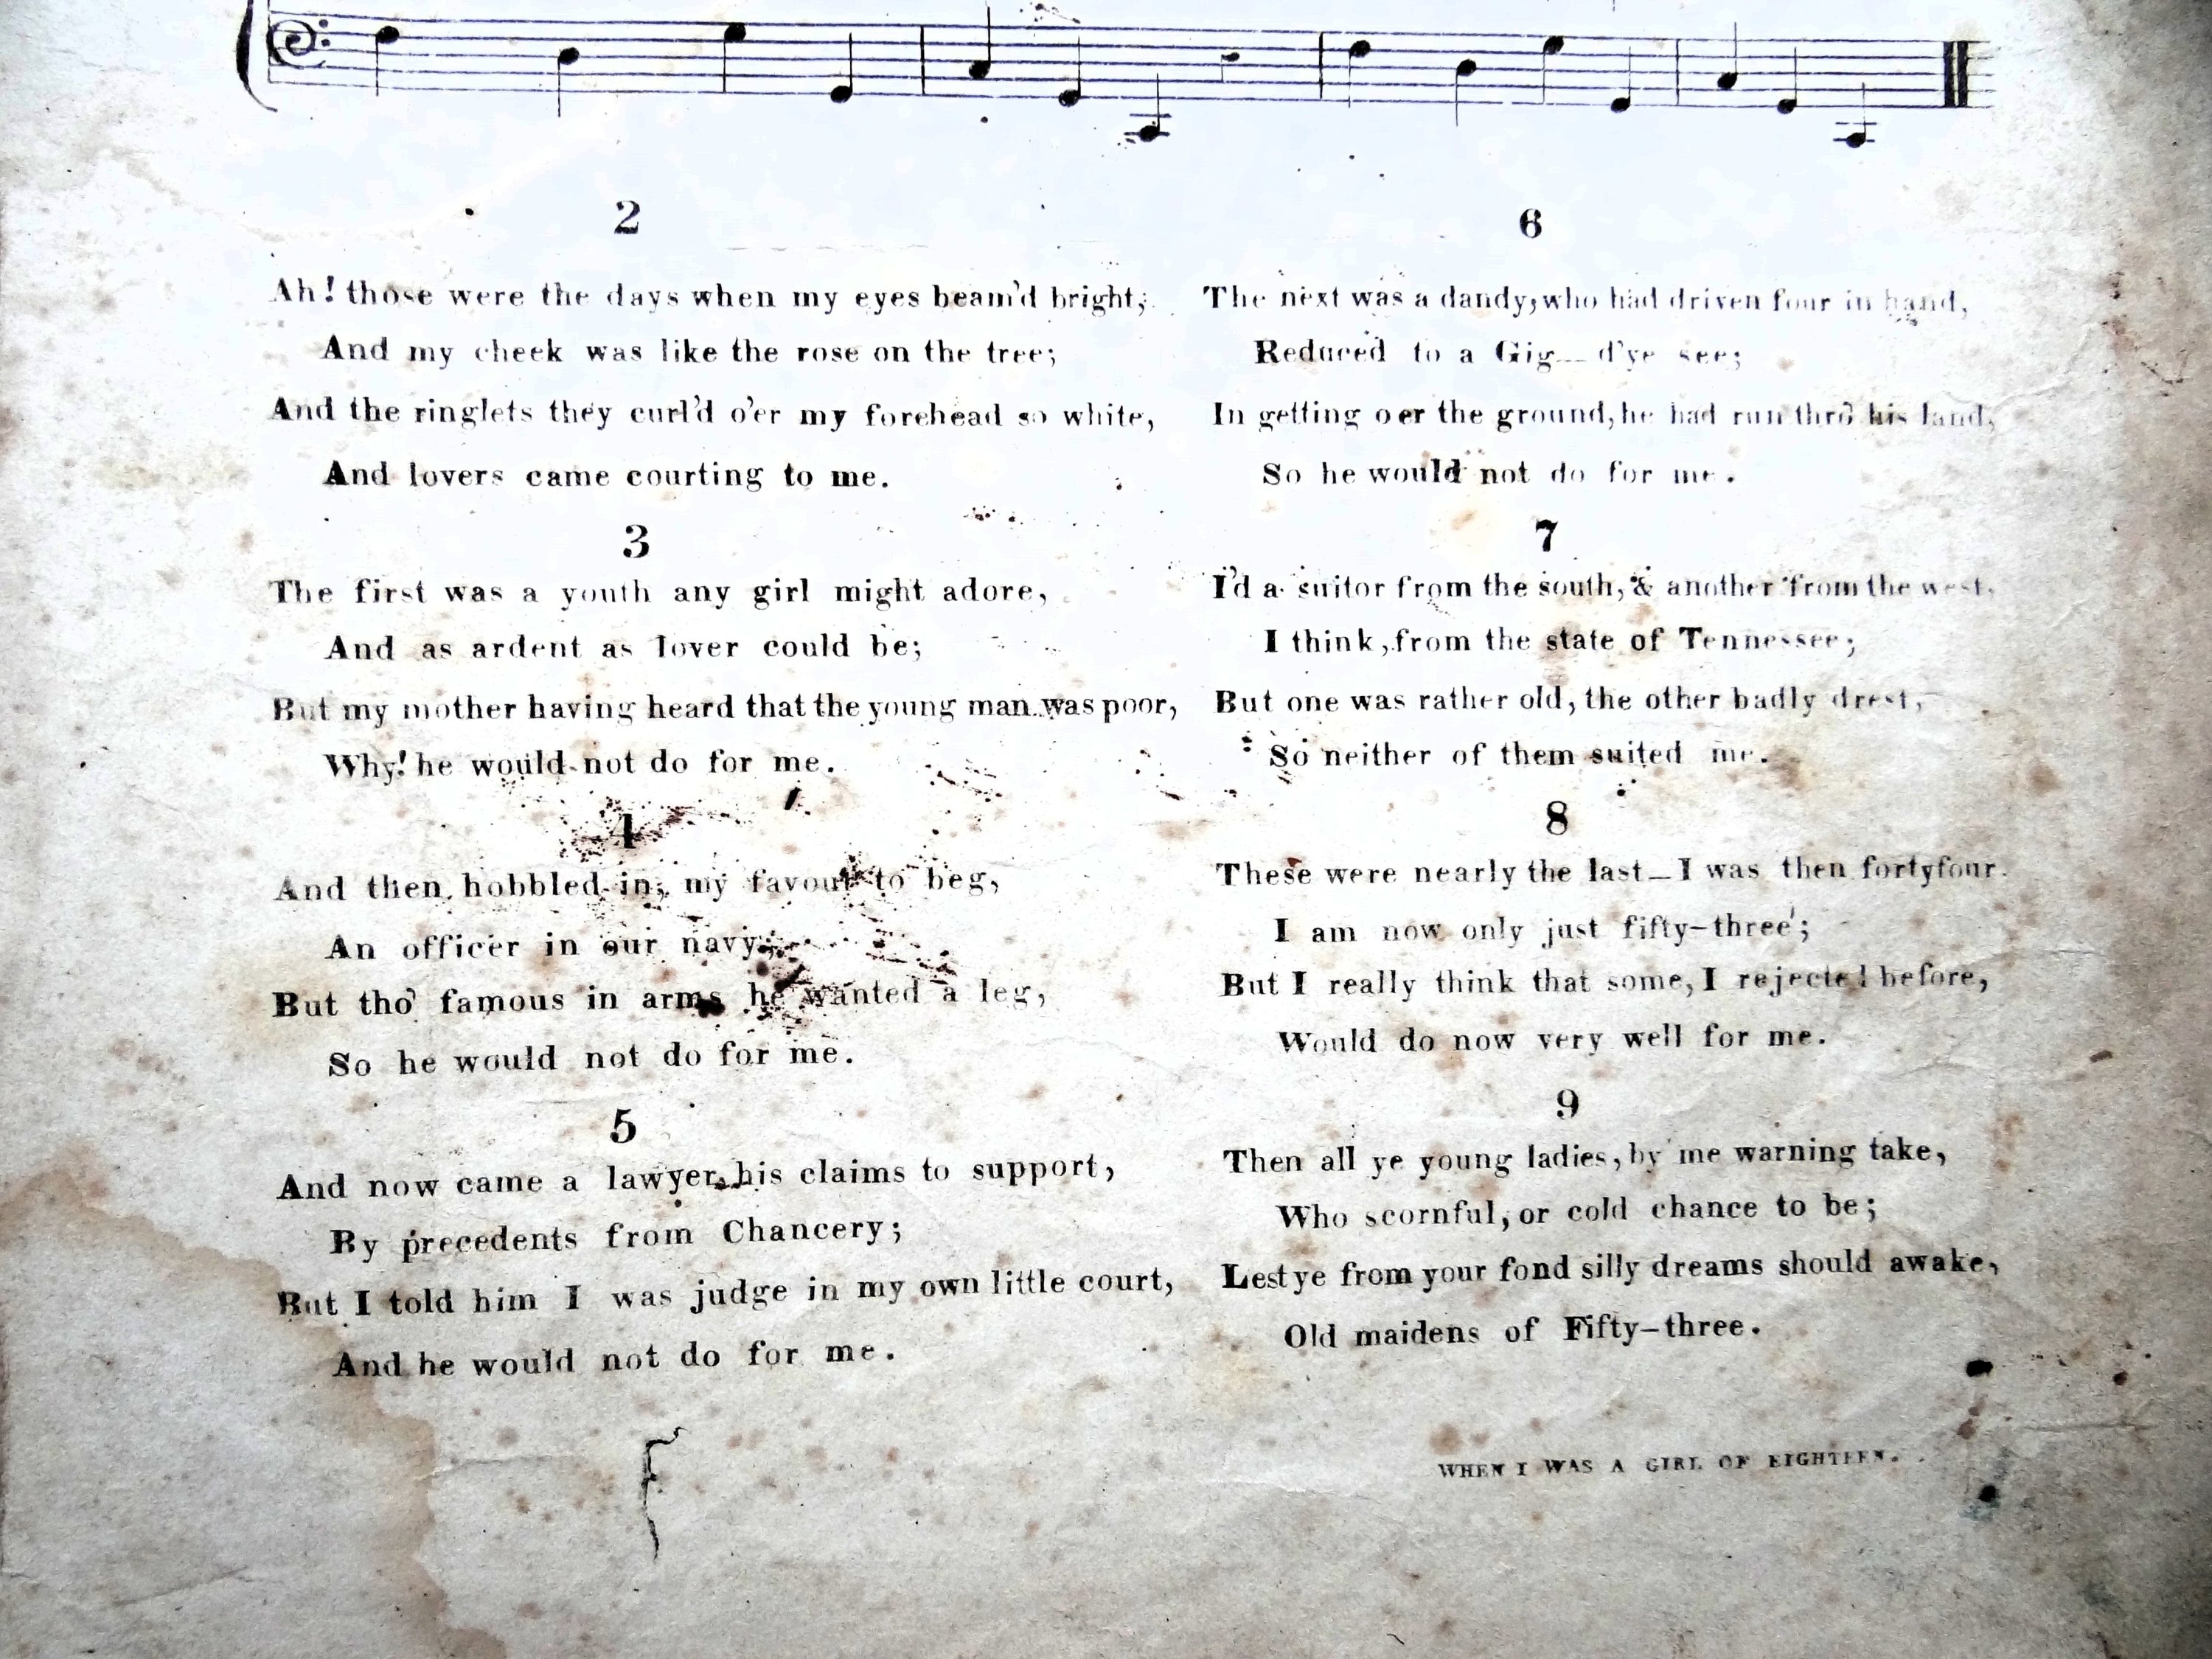 2
Ah! those were the days when my eyes beam'd bright;
And my cheek was like the rose on the tree;
And the ringlets they curl'd o'er my forehead so white,
And lovers came courting to me.
3
The first was a youth any girl might adore,
And as ardent as lover could be;
But my mother having heard that the young man was poor,
Why! he would not do for me.
4
And then hobbled in, my favour to beg,
An officer in our navy;
But tho' famous in arms he wanted a leg,
So he would not do for me.
5
And now came a lawyer, his claims to support,
By precedents from Chancery;
But I told him I was judge in my own little court,
And he would not do for me.
6
The next was a dandy, who had driven four in hand,
Reduced to a Gig— d'ye see;
In getting oer the ground, he had run thro' his land,
So he would not do for me.
7
I'd a suitor from the south, & another from the west,
I think, from the state of Tennessee;
But one was rather old, the other badly drest,
So neither of them suited me.
8
These were nearly the last—I was then fortyfour.
I am now only just fifty-three;
But I really think that some, I rejected before,
Would do now very well for me.
9
Then all ye young ladies, by me warning take,
Who scornful, or cold chance to be;
Lest ye from your fond silly dreams should awake,
Old maidens of Fifty-three.
WHEN I WAS A GIRL OF EIGHTEEN.